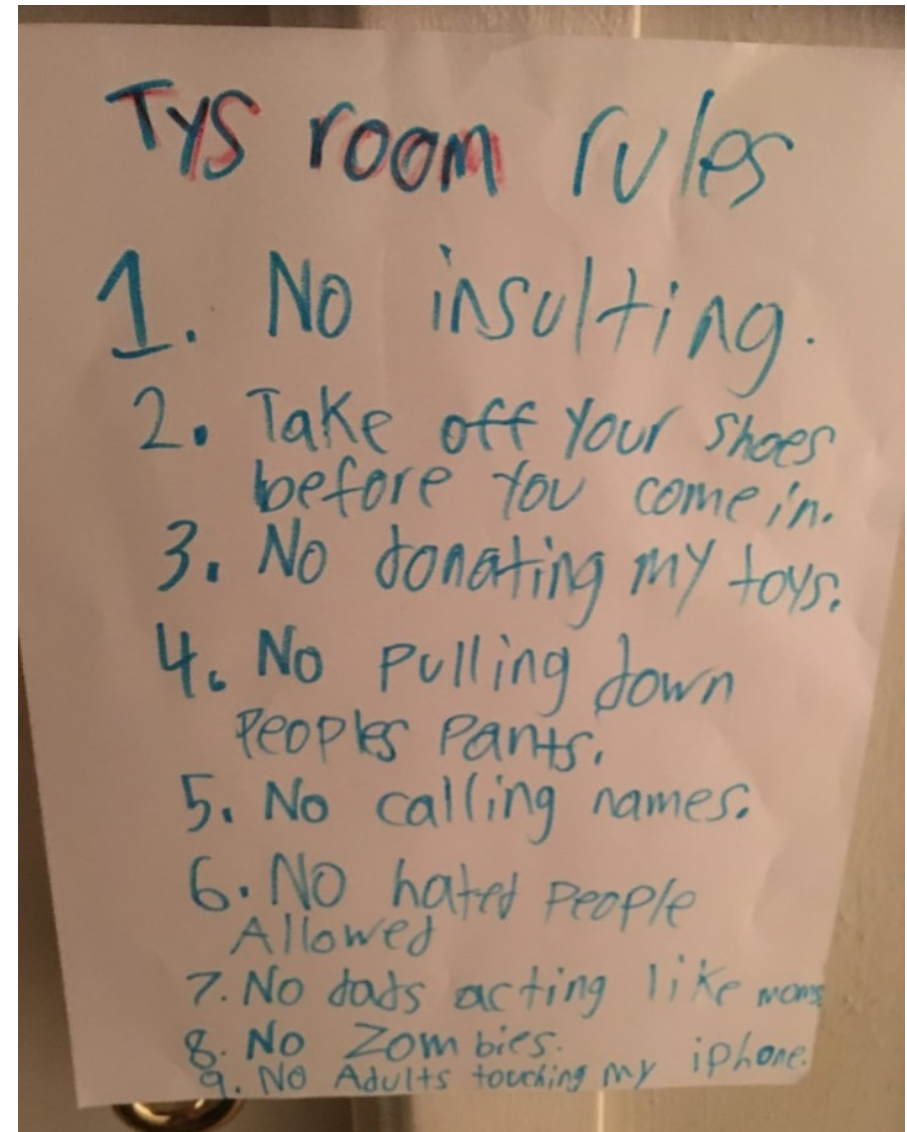 Tys room rules
1. No insulting.
2. Take off your shoes
before you come in.
3. No donating my toys.
4. No pulling down
peoples pants.
5. No calling names.
6. No hated people
Allowed
7. No dads acting like moms
8. No Zombies.
9. No Adults touching my iphone.